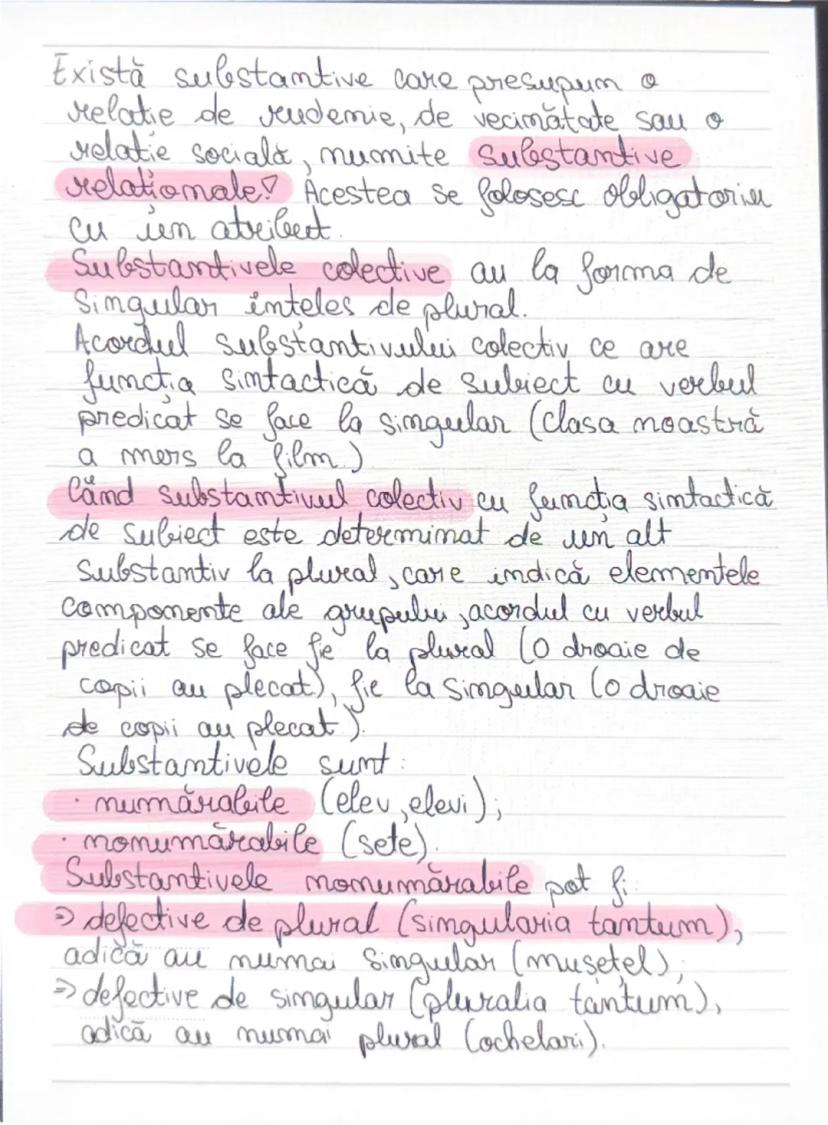 Există substantive care presupun o
relație de rudenie, de vecinătate sau o
relație socială, numite substantive
relaționale! Acestea se folosesc obligatoriu
cu un atribut.
Substantivele colective au la forma de
singular înțeles de plural.
Acordul substantivului colectiv ce are
funcția sintactică de subiect cu verbul
predicat se face la singular (clasa noastră
a mers la film.)
Când substantivul colectiv cu funcția sintactică
de subiect este determinat de un alt
substantiv la plural, care indică elementele
componente ale grupului, acordul cu verbul
predicat se face fie la plural (O droaie de
copii au plecat), fie la singular (o droaie
de copii au plecat).
Substantivele sunt:
· numărabile (elev, elevi);
· nonumărabile (sete).
Substantivele nonumărabile pot fi:
⇒ defective de plural (singularia tantum),
adică au numai singular (mușețel);
⇒ defective de singular (pluralia tantum),
adică au numai plural (ochelari).